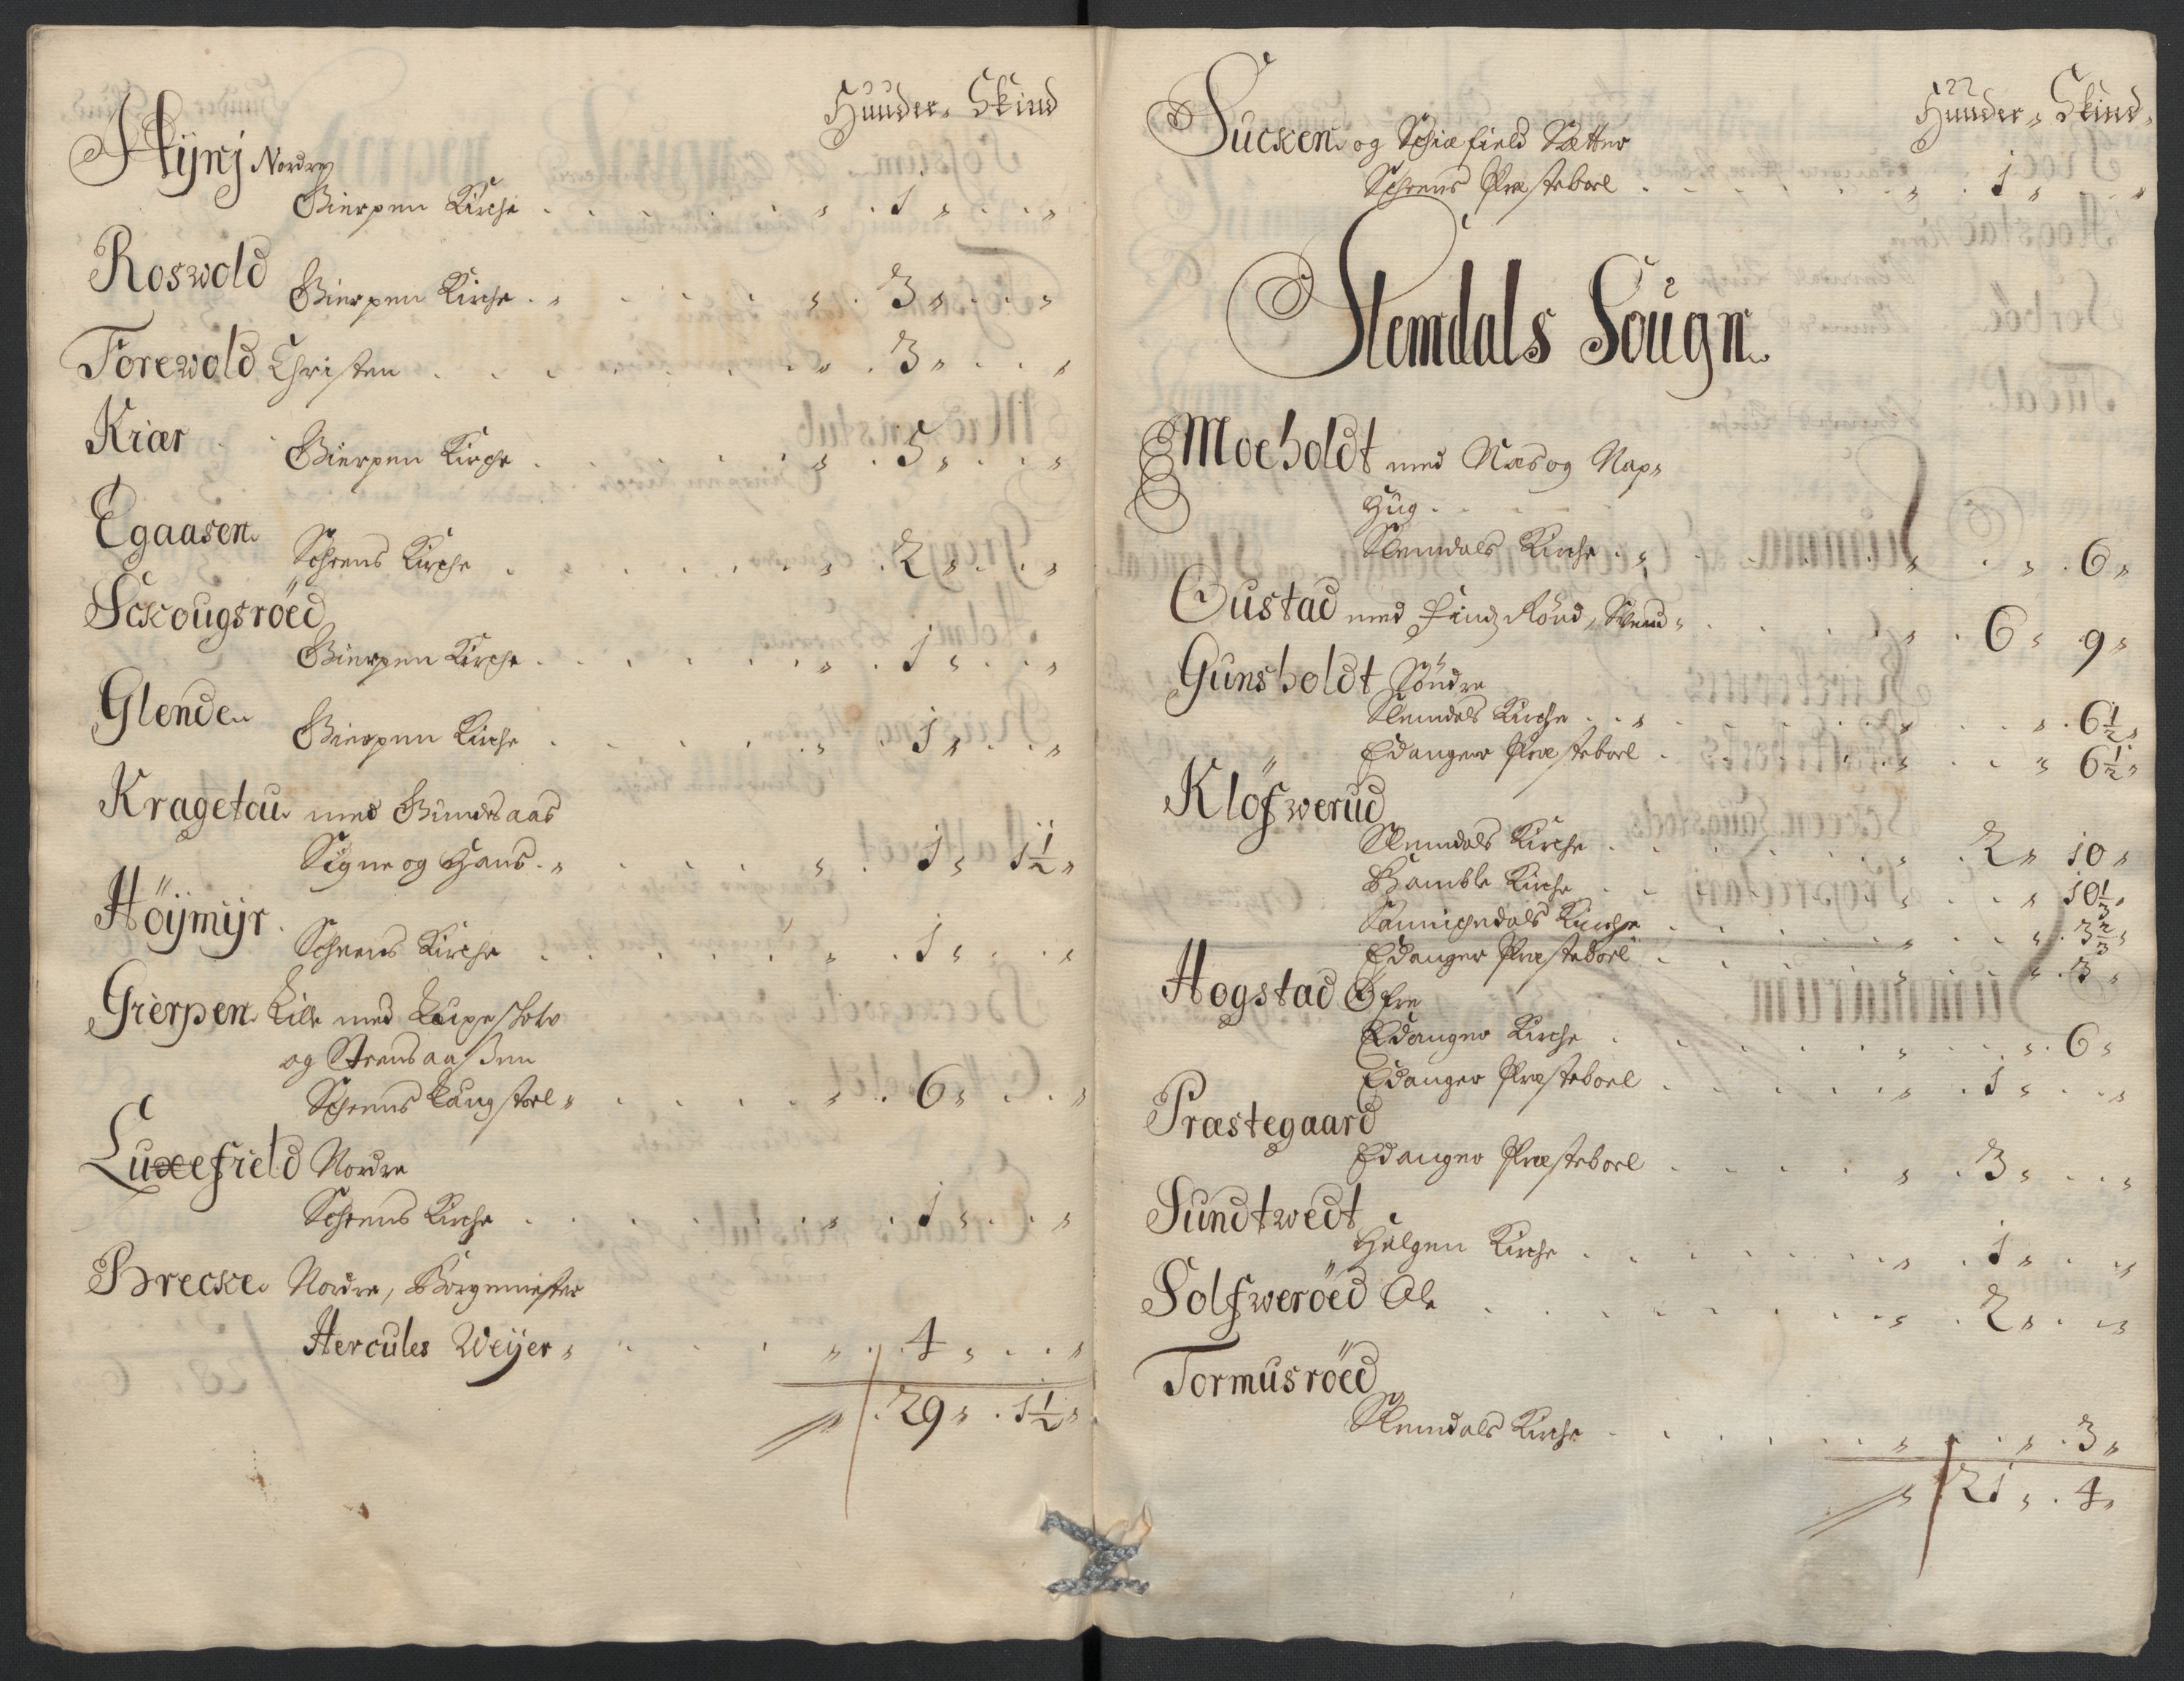 Huuder„ Skind
Hÿnj Nordre
Gierpen Kirche . . . . . . „ . 1 „ . . „
Roswold
Gierpen Kirche . „ . . . . „ . 3 „ . . „
Torewold Christen . . . . . „ . 3 „ . . „
Kiær
Gierpen Kirche . . . . . . „ . 5 „ . . „
Egaasen
Schiens Kirche . . . . . . „ . 2 „ . . „
Sckougsröed
Gierpen Kirche . . . . . . „ . 1 „ . . „
Glende
Gierpen Kirche . . . . . . „ . 1 „ . . „
Kragetou med Gundsaas
Signe og Hans . „ . . . . „ . 1 „ 1½ „
Höÿmÿr
Schiens Kirche . . . . . . „ . 1 „ . . „
Gierpen Lille med
og Steensaasen
Schiens Laugstoel „ . . . . „ . 6 „ . . „
Luxefield Nordre
Schiens Kirche . . . . . . „ . 1 „ . . „
Brecke Nordre, Borgemester
Hercules Weÿer „ . . . . „ . 4 „ . . „
„ . 29 „ . 1½ „
Huuder „ Skind „
Sucken og Schiæfield Sætter
Schiens Præsteboel . . . . . „ . 1 „ . . „
Slemdals Sougn
Moeholdt med Næs og Nap„
Hug .
Slemdals Kirche . „ . . . . „ . . „ . 6 „
Oustad med Lindrönd, Slemd„ . . . „ . 6 „ 9 „
Gunsholdt Söndre
Slemdals Kirche . . „ . . . „ . . „ . 6½ „
Edanger Præsteboel . . . . „ . . „ 6½ „
Klöfwerud
Slemdals Kirche . . . . . „ . 2 „ 10 „
Bamble Kirche . . . . . „ . . „ 10⅓ „
Sannichedals Kirche . . . . „ . . „ . 3⅔ „
Edanger Præsteboel . . . . „ . . „ . 3 „
Hogstad Öfre
Edanger Kirche . . . . . „ . . „ . 6 „
Edanger Præsteboel . . . . „ . 1 „ . . „
Præstegaard
Edanger Præsteboel . . . . „ . 3 „ . . „
Sundtwedt
Helgen Kirche . . . . . „ . 1 „ . . „
Solfweröed Ole . . . . . „ . 2 „ . . „
Tormusröed
Slemdals Kirche . . . . . „ . . „ . 3 „
„ . 21 „ . 4 „